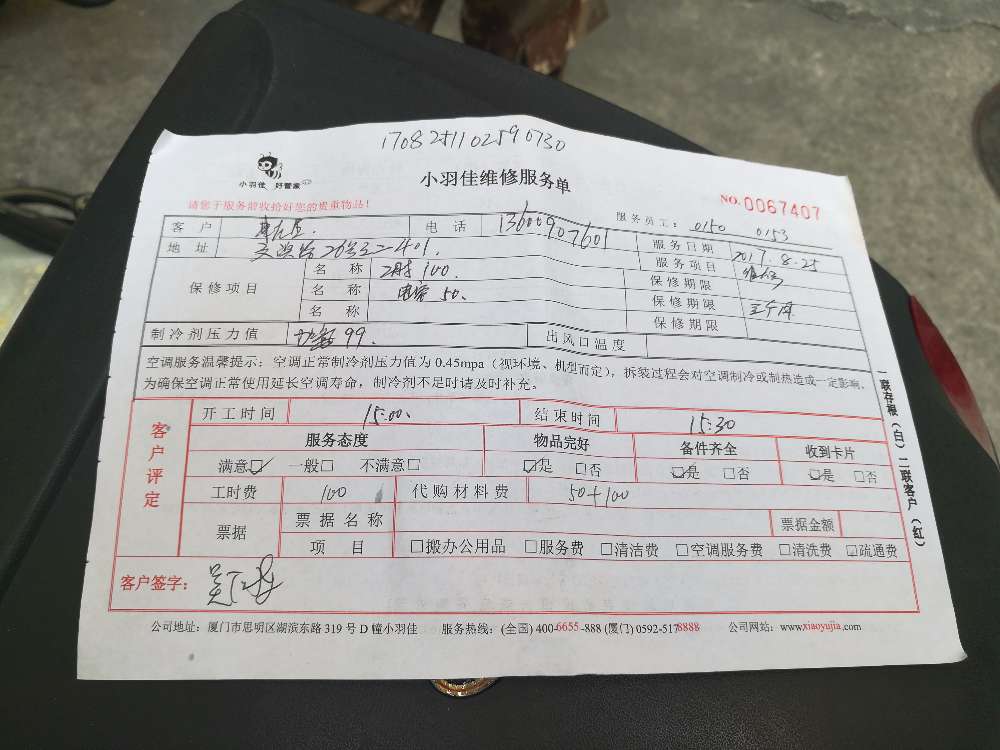 170825110259 0730
小羽佳 好管家
小羽佳维修服务单
NO.0067407
请您于服务前收拾好您的贵重物品！
服务员工： 0150 0153
客户 电话 13600907601 服务日期 2017.8.25
地址 26号之二-401. 服务项目 维修
保修项目 名称 100. 保修期限
名称 50. 保修期限
名称 保修期限
制冷剂压力值 99. 出风口温度
空调服务温馨提示：空调正常制冷剂压力值为0.45mpa（视环境、机型而定），拆装过程会对空调制冷或制热造成一定影响，
为确保空调正常使用延长空调寿命，制冷剂不足时请及时补充。
客户评定
开工时间 15:00. 结束时间 15:30
服务态度 物品完好 备件齐全 收到卡片
满意☑ 一般□ 不满意□ ☑是 □否 ☑是 □否 ☑是 □否
工时费 100 代购材料费 50+100
票据 票据名称 票据金额
项目 □搬办公用品 □服务费 □清洁费 □空调服务费 □清洗费 □疏通费
客户签字：
一联存根（白）二联客户（红）
公司地址：厦门市思明区湖滨东路319号D幢小羽佳 服务热线：(全国) 400-6655-888 (厦门) 0592-5178888 公司网站：www.xiaoyujia.com